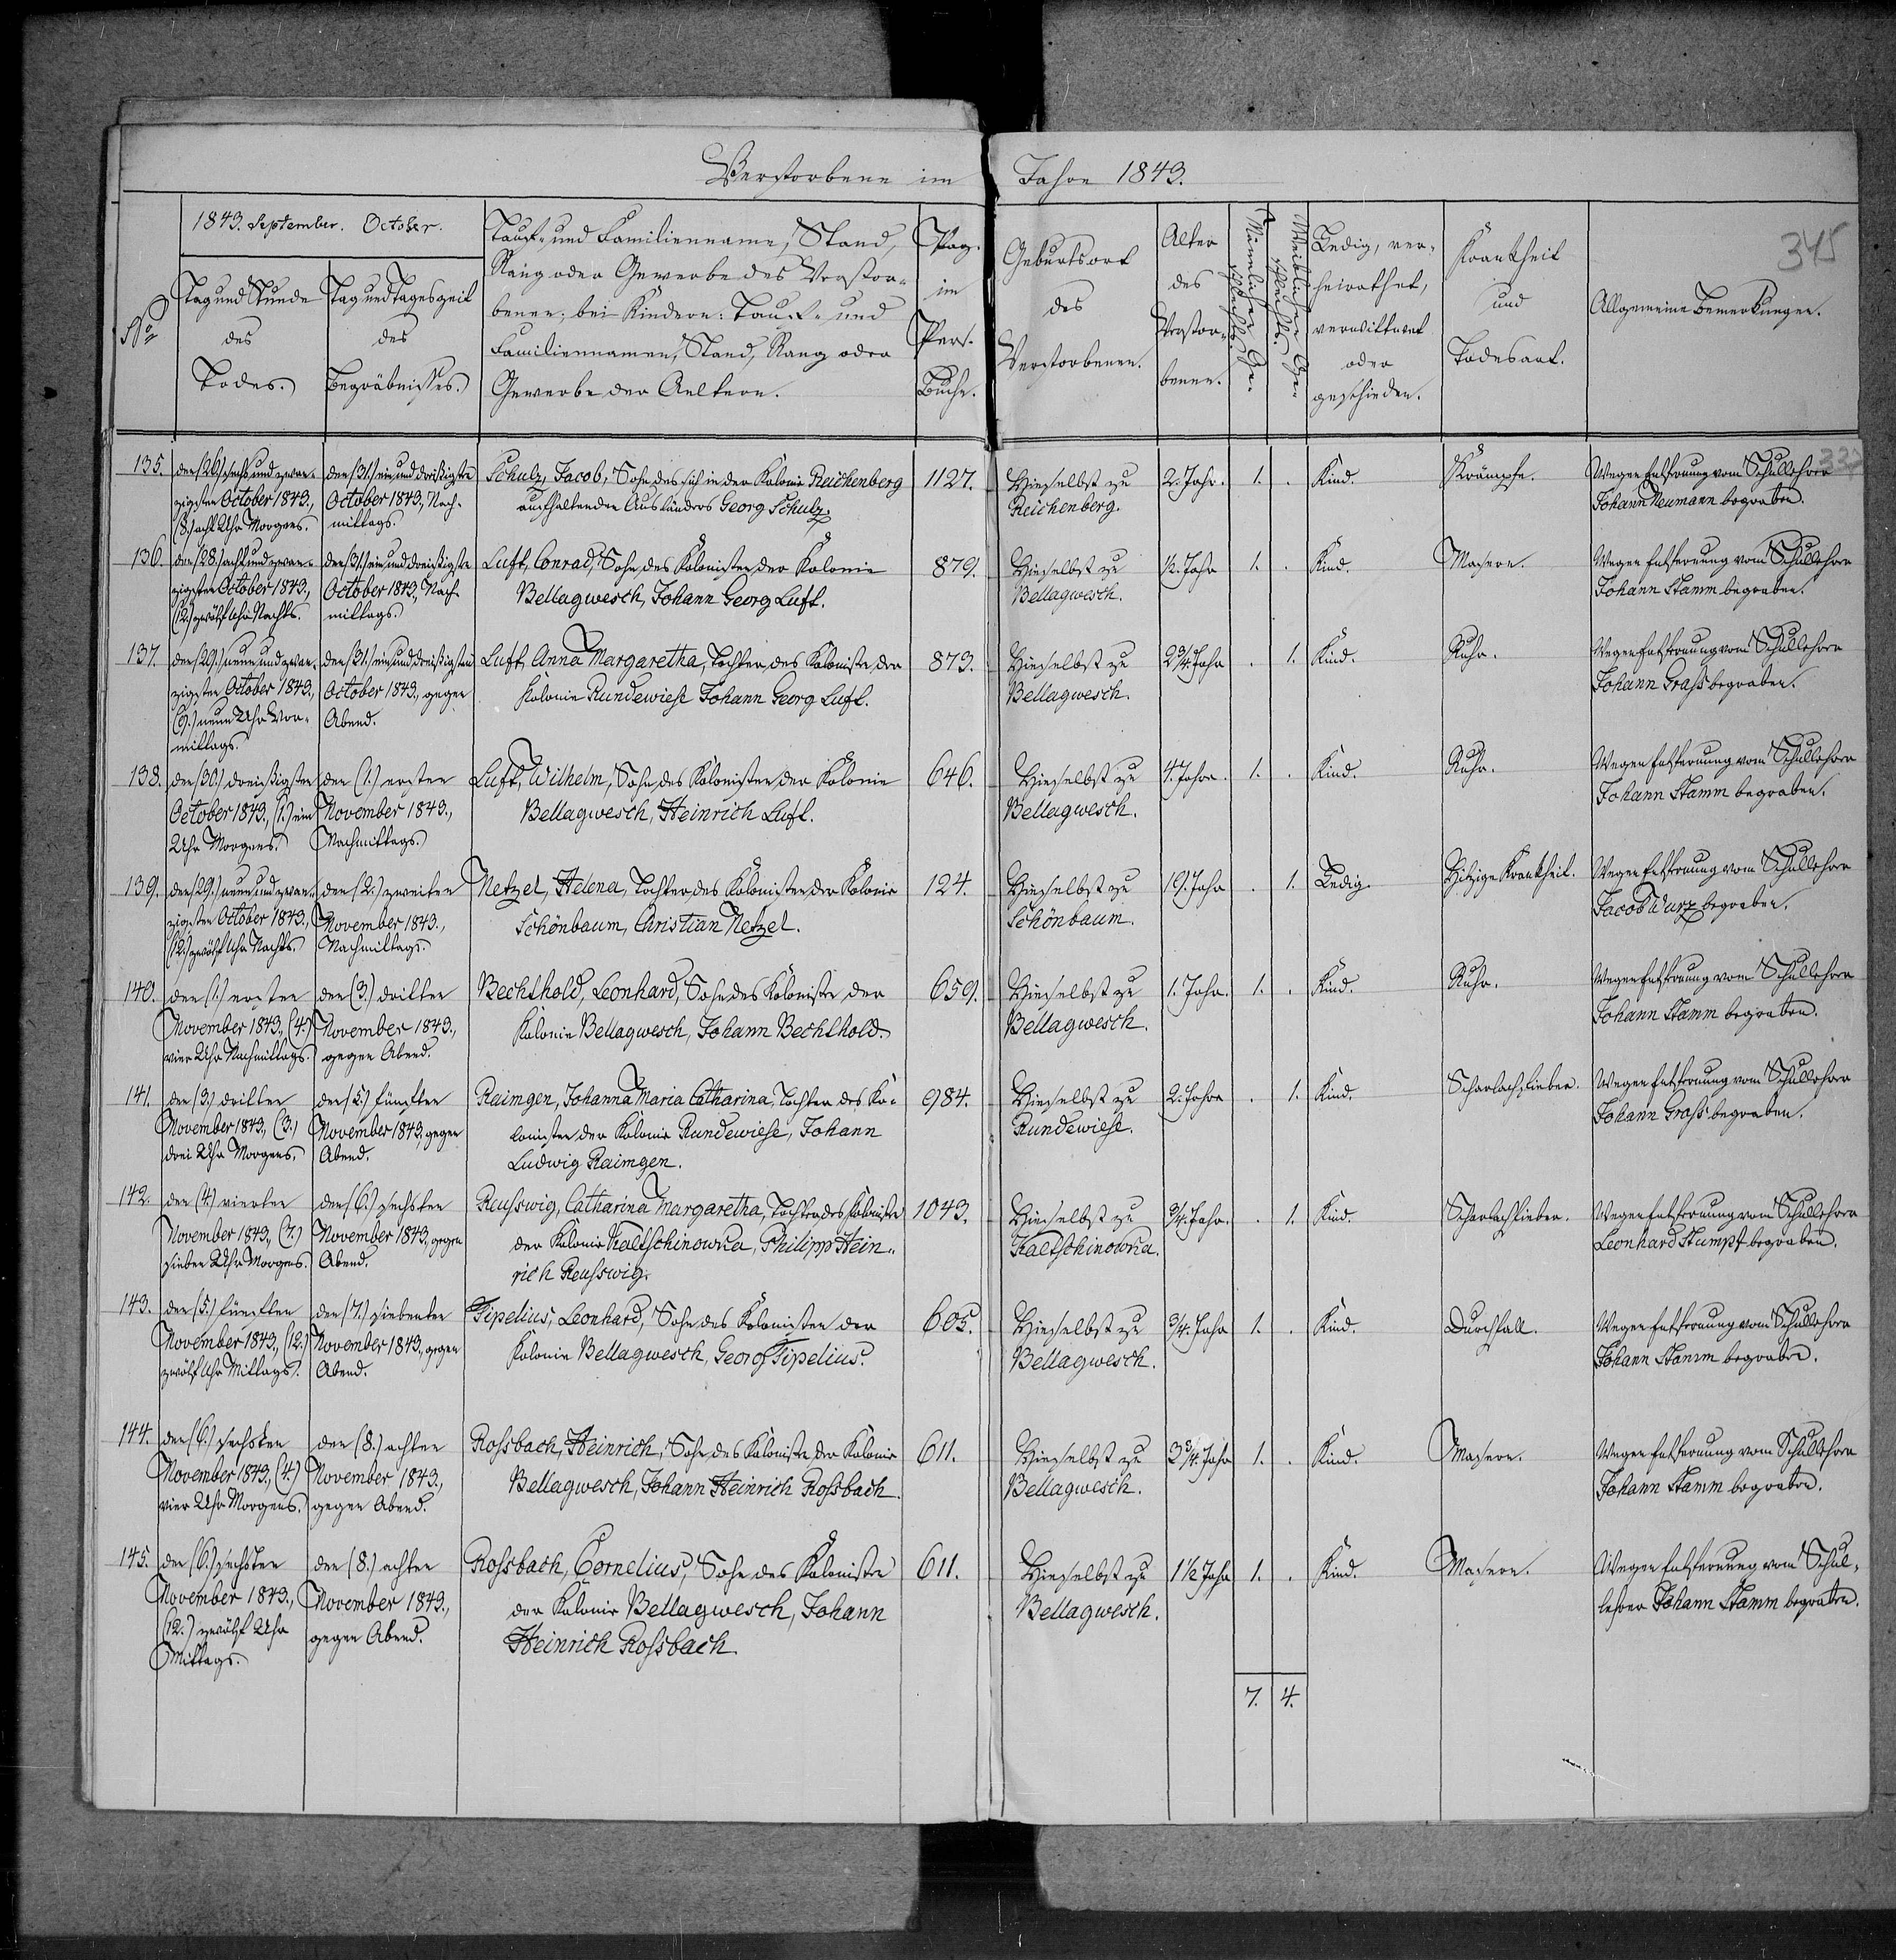 Verstorbene im Jahre 1843.
345
1843. September. October.
No
Tag und Stunde
des
Todes.
Tag und Tageszeit
des
Begräbnißes.
Tauf- und Familienname, Stand,
Rang oder Gewerbe des Verstor-
benen; bei Kindern: Tauf- und
Familiennamen, Stand, Rang oder
Gewerbe der Aeltern.
Pag.
im
Pers.
Buche.
Geburtsort
des
Verstorbenen.
Alter
des
Verstor-
benen.
Männlichen Ge-
schlechts.
Weiblichen Ge-
schlechts.
Ledig, ver-
heirathet,
verwittwet
oder
geschieden.
Krankheit
und
Todesart.
Allgemeine Bemerkungen.
135.
den (26.) sechs und zwan-
zigsten October 1843.,
(8.) acht Uhr Morgens.
den (31.) ein und dreißigsten
October 1843., Nach-
mittags.
Schulz, Jacob, Sohn des sich in der Kolonie Reichenberg
aufhaltenden Ausländers Georg Schulz.
1127.
Hieselbst zu
Reichenberg.
2. Jahr.
1.
.
Kind.
Krämpfe.
Wegen Entfernung vom Schullehrer
Johann Neumann begraben.
136.
den (28.) acht und zwan-
zigsten October 1843.,
(12.) zwölf Uhr Nachts.
den (31.) ein und dreißigsten
October 1843., Nach-
mittags.
Luft, Conrad, Sohn des Kolonisten der Kolonie
Bellagwesch, Johann Georg Luft.
879.
Hieselbst zu
Bellagwesch.
½. Jahr
1.
.
Kind.
Masern.
Wegen Entfernung vom Schullehrer
Johann Stamm begraben.
137.
den (29.) neun und zwan-
zigsten October 1843.,
(9.) neun Uhr Vor-
mittags.
den (31.) ein und dreißigsten
October 1843., gegen
Abend.
Luft, Anna Margaretha, Tochter des Kolonisten der
Kolonie Rundewiese Johann Georg Luft.
873.
Hieselbst zu
Bellagwesch.
2¾. Jahr
.
1.
Kind.
Ruhr.
Wegen Entfernung vom Schullehrer
Johann Graß begraben.
138.
den (30.) dreißigsten
October 1843., (1.) ein
Uhr Morgens.
den (1.) ersten
November 1843.,
Nachmittags.
Luft, Wilhelm, Sohn des Kolonisten der Kolonie
Bellagwesch, Heinrich Luft.
646.
Hieselbst zu
Bellagwesch.
4. Jahr.
1.
.
Kind.
Ruhr.
Wegen Entfernung vom Schullehrer
Johann Stamm begraben.
139.
den (29.) neun und zwan-
zigsten October 1843.,
(12.) zwölf Uhr Nachts.
den (2.) zweiten
November 1843.,
Nachmittags.
Netzel, Helena, Tochter des Kolonisten der Kolonie
Schönbaum, Christian Netzel.
124.
Hieselbst zu
Schönbaum.
19. Jahr
.
1.
Ledig.
Hitzige Krankheit.
Wegen Entfernung vom Schullehrer
Jacob Wurz begraben.
140.
den (1.) ersten
November 1843., (4.)
vier Uhr Nachmittags.
den (3.) dritten
November 1843.,
gegen Abend.
Bechthold, Leonhard, Sohn des Kolonisten der
Kolonie Bellagwesch, Johann Bechthold.
659.
Hieselbst zu
Bellagwesch.
1. Jahr.
1.
.
Kind.
Ruhr.
Wegen Entfernung vom Schullehrer
Johann Stamm begraben.
141.
den (3.) dritten
November 1843., (3.)
drei Uhr Morgens.
den (5.) fünften
November 1843., gegen
Abend.
Raimgen, Johanna Maria Catharina, Tochter des Ko-
lonisten der Kolonie Rundewiese, Johann
Ludwig Raimgen.
984.
Hieselbst zu
Rundewiese.
2. Jahre
.
1.
Kind.
Scharlachfieber.
Wegen Entfernung vom Schullehrer
Johann Graß begraben.
142.
den (4.) vierten
November 1843., (7.)
sieben Uhr Morgens.
den (6.) sechsten
November 1843., gegen
Abend.
Reußwig, Catharina Margaretha, Tochter des Kolonisten
der Kolonie Kaltschinowka, Philipp Hein-
rich Reußwig.
1043.
Hieselbst zu
Kaltschinowka.
¾. Jahr.
.
1.
Kind.
Scharlachfieber.
Wegen Entfernung vom Schullehrer
Leonhard Stumpf begraben.
143.
den (5.) fünften
November 1843., (12.)
zwölf Uhr Mittags.
den (7.) siebenten
November 1843., gegen
Abend.
Fipelius, Leonhard, Sohn des Kolonisten der
Kolonie Bellagwesch, Georg Fipelius.
605.
Hieselbst zu
Bellagwesch.
¾. Jahr
1.
.
Kind.
Durchfall.
Wegen Entfernung vom Schullehrer
Johann Stamm begraben.
144.
den (6.) sechsten
November 1843., (4.)
vier Uhr Morgens.
den (8.) achten
November 1843.,
gegen Abend.
Roßbach, Heinrich, Sohn des Kolonisten der Kolonie
Bellagwesch, Johann Heinrich Roßbach.
611.
Hieselbst zu
Bellagwesch.
3¾. Jahr
1.
.
Kind.
Masern.
Wegen Entfernung vom Schullehrer
Johann Stamm begraben.
145.
den (6.) sechsten
November 1843.,
(12.) zwölf Uhr
Mittags.
den (8.) achten
November 1843.,
gegen Abend.
Roßbach, Cornelius, Sohn des Kolonisten
der Kolonie Bellagwesch, Johann
Heinrich Roßbach.
611.
Hieselbst zu
Bellagwesch.
1½ Jahr
1.
.
Kind.
Masern.
Wegen Entfernung vom Schul-
lehrer Johann Stamm begraben.
7.
4.